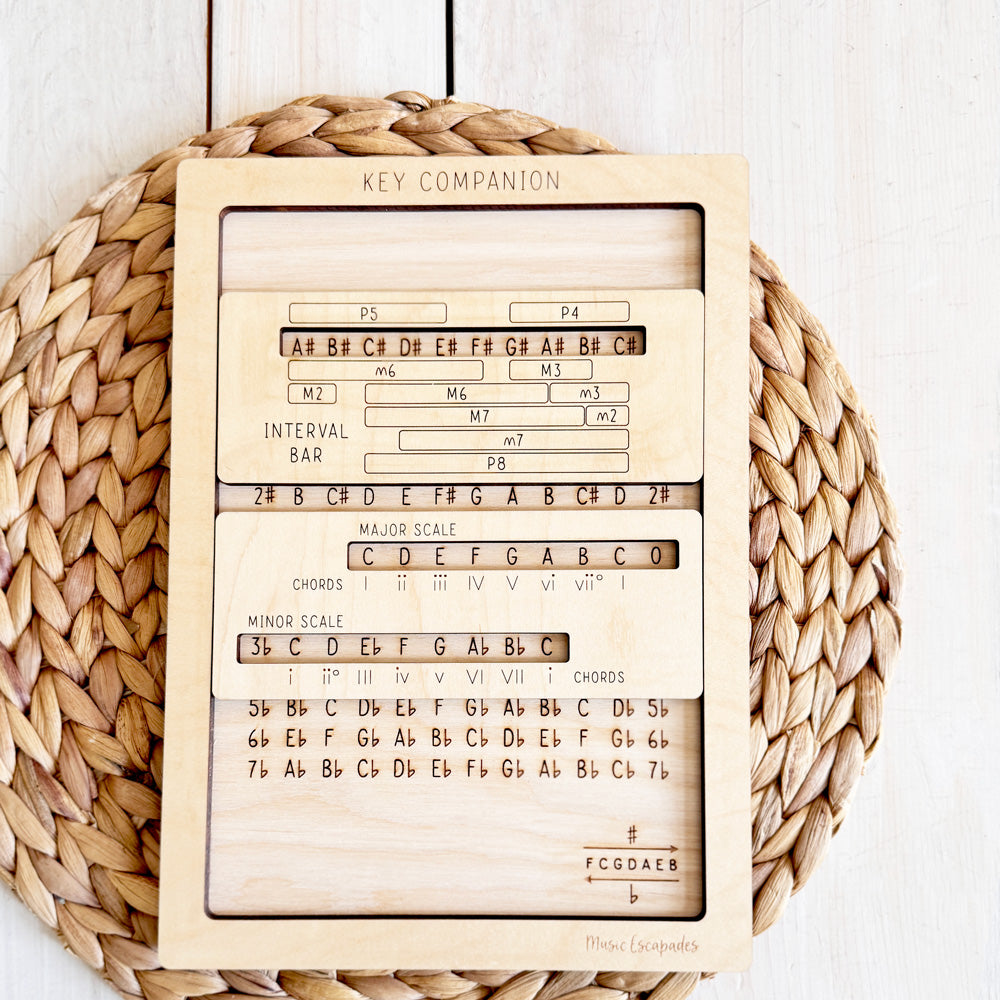 KEY COMPANION
P5 P4
A# B# C# D# E# F# G# A# B# C#
m6 M3
M2 M6 m3
M7 m2
INTERVAL m7
BAR P8
2# B C# D E F# G A B C# D 2#
MAJOR SCALE
C D E F G A B C 0
CHORDS I ii iii IV V vi vii° I
MINOR SCALE
3♭ C D E♭ F G A♭ B♭ C
i ii° III iv v VI VII i CHORDS
5♭ B♭ C D♭ E♭ F G♭ A♭ B♭ C D♭ 5♭
6♭ E♭ F G♭ A♭ B♭ C♭ D♭ E♭ F G♭ 6♭
7♭ A♭ B♭ C♭ D♭ E♭ F♭ G♭ A♭ B♭ C♭ 7♭
#
F C G D A E B
♭
Music Escapades